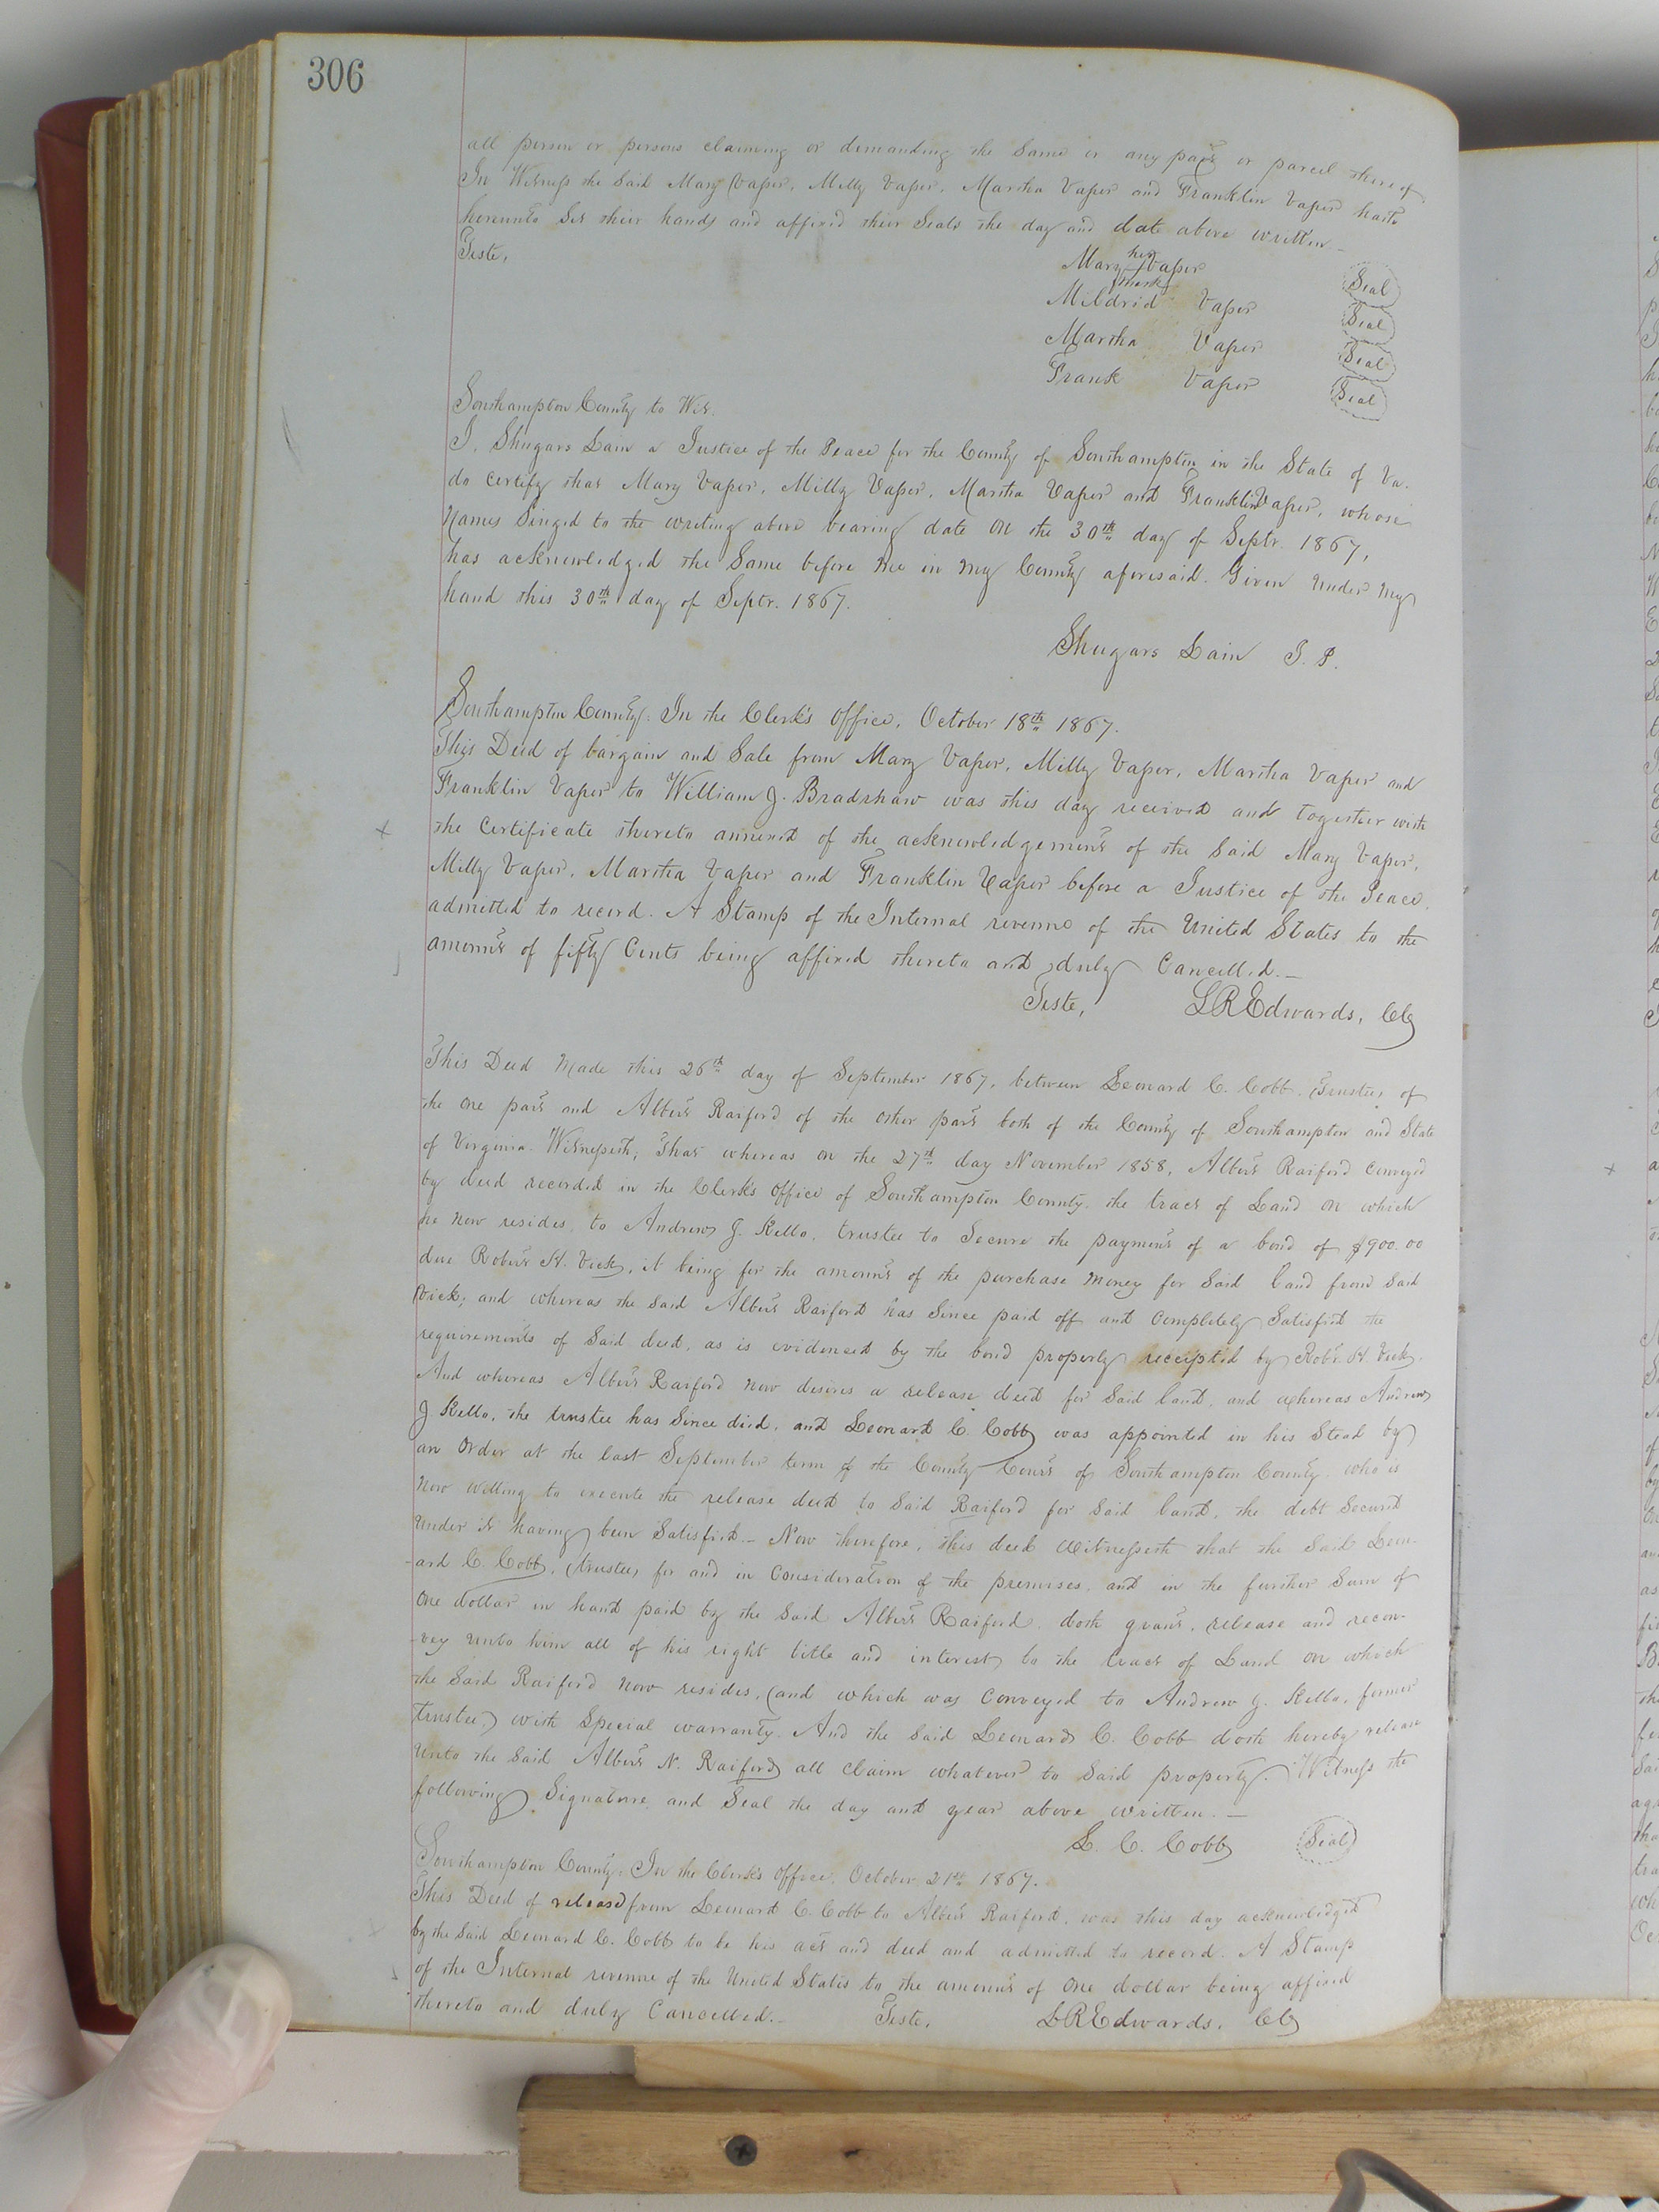 306
all person or persons claiming or demanding the same or any part or parcel thereof
In Witness the Said Mary Vaper, Milly Vaper, Martha Vaper and Franklin Vaper hath
hereunto Set their hands and affixed their Seals the day and date above written —
Teste,
her
Mary + Vaper Seal
mark
Mildrid Vaper Seal
Martha Vaper Seal
Frank Vaper Seal
Southampton County to Wit.
I, Shugars Lain a Justice of the Peace for the County of Southampton in the State of Va.
do Certify that Mary Vaper, Milly Vaper, Martha Vaper and Franklin Vaper, whose
Names Singed to the writing above bearing date on the 30th day of Septr. 1867,
has acknowledged the Same before me in my County aforesaid. Given under my
hand this 30th day of Septr. 1867.
Shugars Lain J. P.
Southampton County: In the Clerk's Office, October 18th 1867.
This Deed of bargain and Sale from Mary Vaper, Milly Vaper, Martha Vaper and
Franklin Vaper to William J. Bradshaw was this day received and together with
the Certificate thereto annexed of the acknowledgement of the Said Mary Vaper,
Milly Vaper, Martha Vaper and Franklin Vaper before a Justice of the Peace,
admitted to record. A Stamp of the Internal revenue of the United States to the
amount of fifty Cents being affixed thereto and duly Cancelled. —
Teste, LREdwards, CC
This Deed Made this 26th day of September 1867, between Leonard C. Cobb, Trustee, of
the one part and Albert Raiford of the other part both of the County of Southampton and State
of Virginia. Witnesseth; That whereas on the 27th day November 1858, Albert Raiford Conveyed
by deed recorded in the Clerk's Office of Southampton County, the tract of Land on which
he now resides, to Andrew J. Kello, trustee to Secure the payment of a bond of $900.00
due Robert H. Vick, it being for the amount of the purchase money for Said land from Said
Vick; and whereas the Said Albert Raiford has Since paid off and Completely Satisfied the
requirements of Said deed, as is evidenced by the bond properly receipted by Robt. H. Vick.
And whereas Albert Raiford now desires a release deed for Said land, and whereas Andrew
J Kello, the trustee has Since died, and Leonard C. Cobb was appointed in his Stead by
an Order at the last September term of the County Court of Southampton County, who is
now willing to execute the release deed to Said Raiford for Said land, the debt Secured
under it having been Satisfied. — Now therefore, this deed Witnesseth that the Said Leon-
-ard C. Cobb, (trustee, for and in Consideration of the premises, and in the further Sum of
One dollar in hand paid by the Said Albert Raiford, doth grant, release and recon-
-vey unto him all of his right title and interest, to the tract of Land on which
the Said Raiford now resides, (and which was Conveyed to Andrew J. Kello, former
trustee,) with Special warranty. And the Said Leonard C. Cobb doth hereby release
unto the Said Albert N. Raiford all claim whatever to Said property. Witness the
following Signature and Seal the day and year above written. —
L. C. Cobb Seal
Southampton County: In the Clerk's Office, October 21st 1867.
This Deed of release from Leonard C. Cobb to Albert Raiford, was this day acknowledged
by the Said Leonard C. Cobb to be his act and deed and admitted to record. A Stamp
of the Internal revenue of the United States to the amount of One dollar being affixed
thereto and duly Cancelled. — Teste, LREdwards, CC